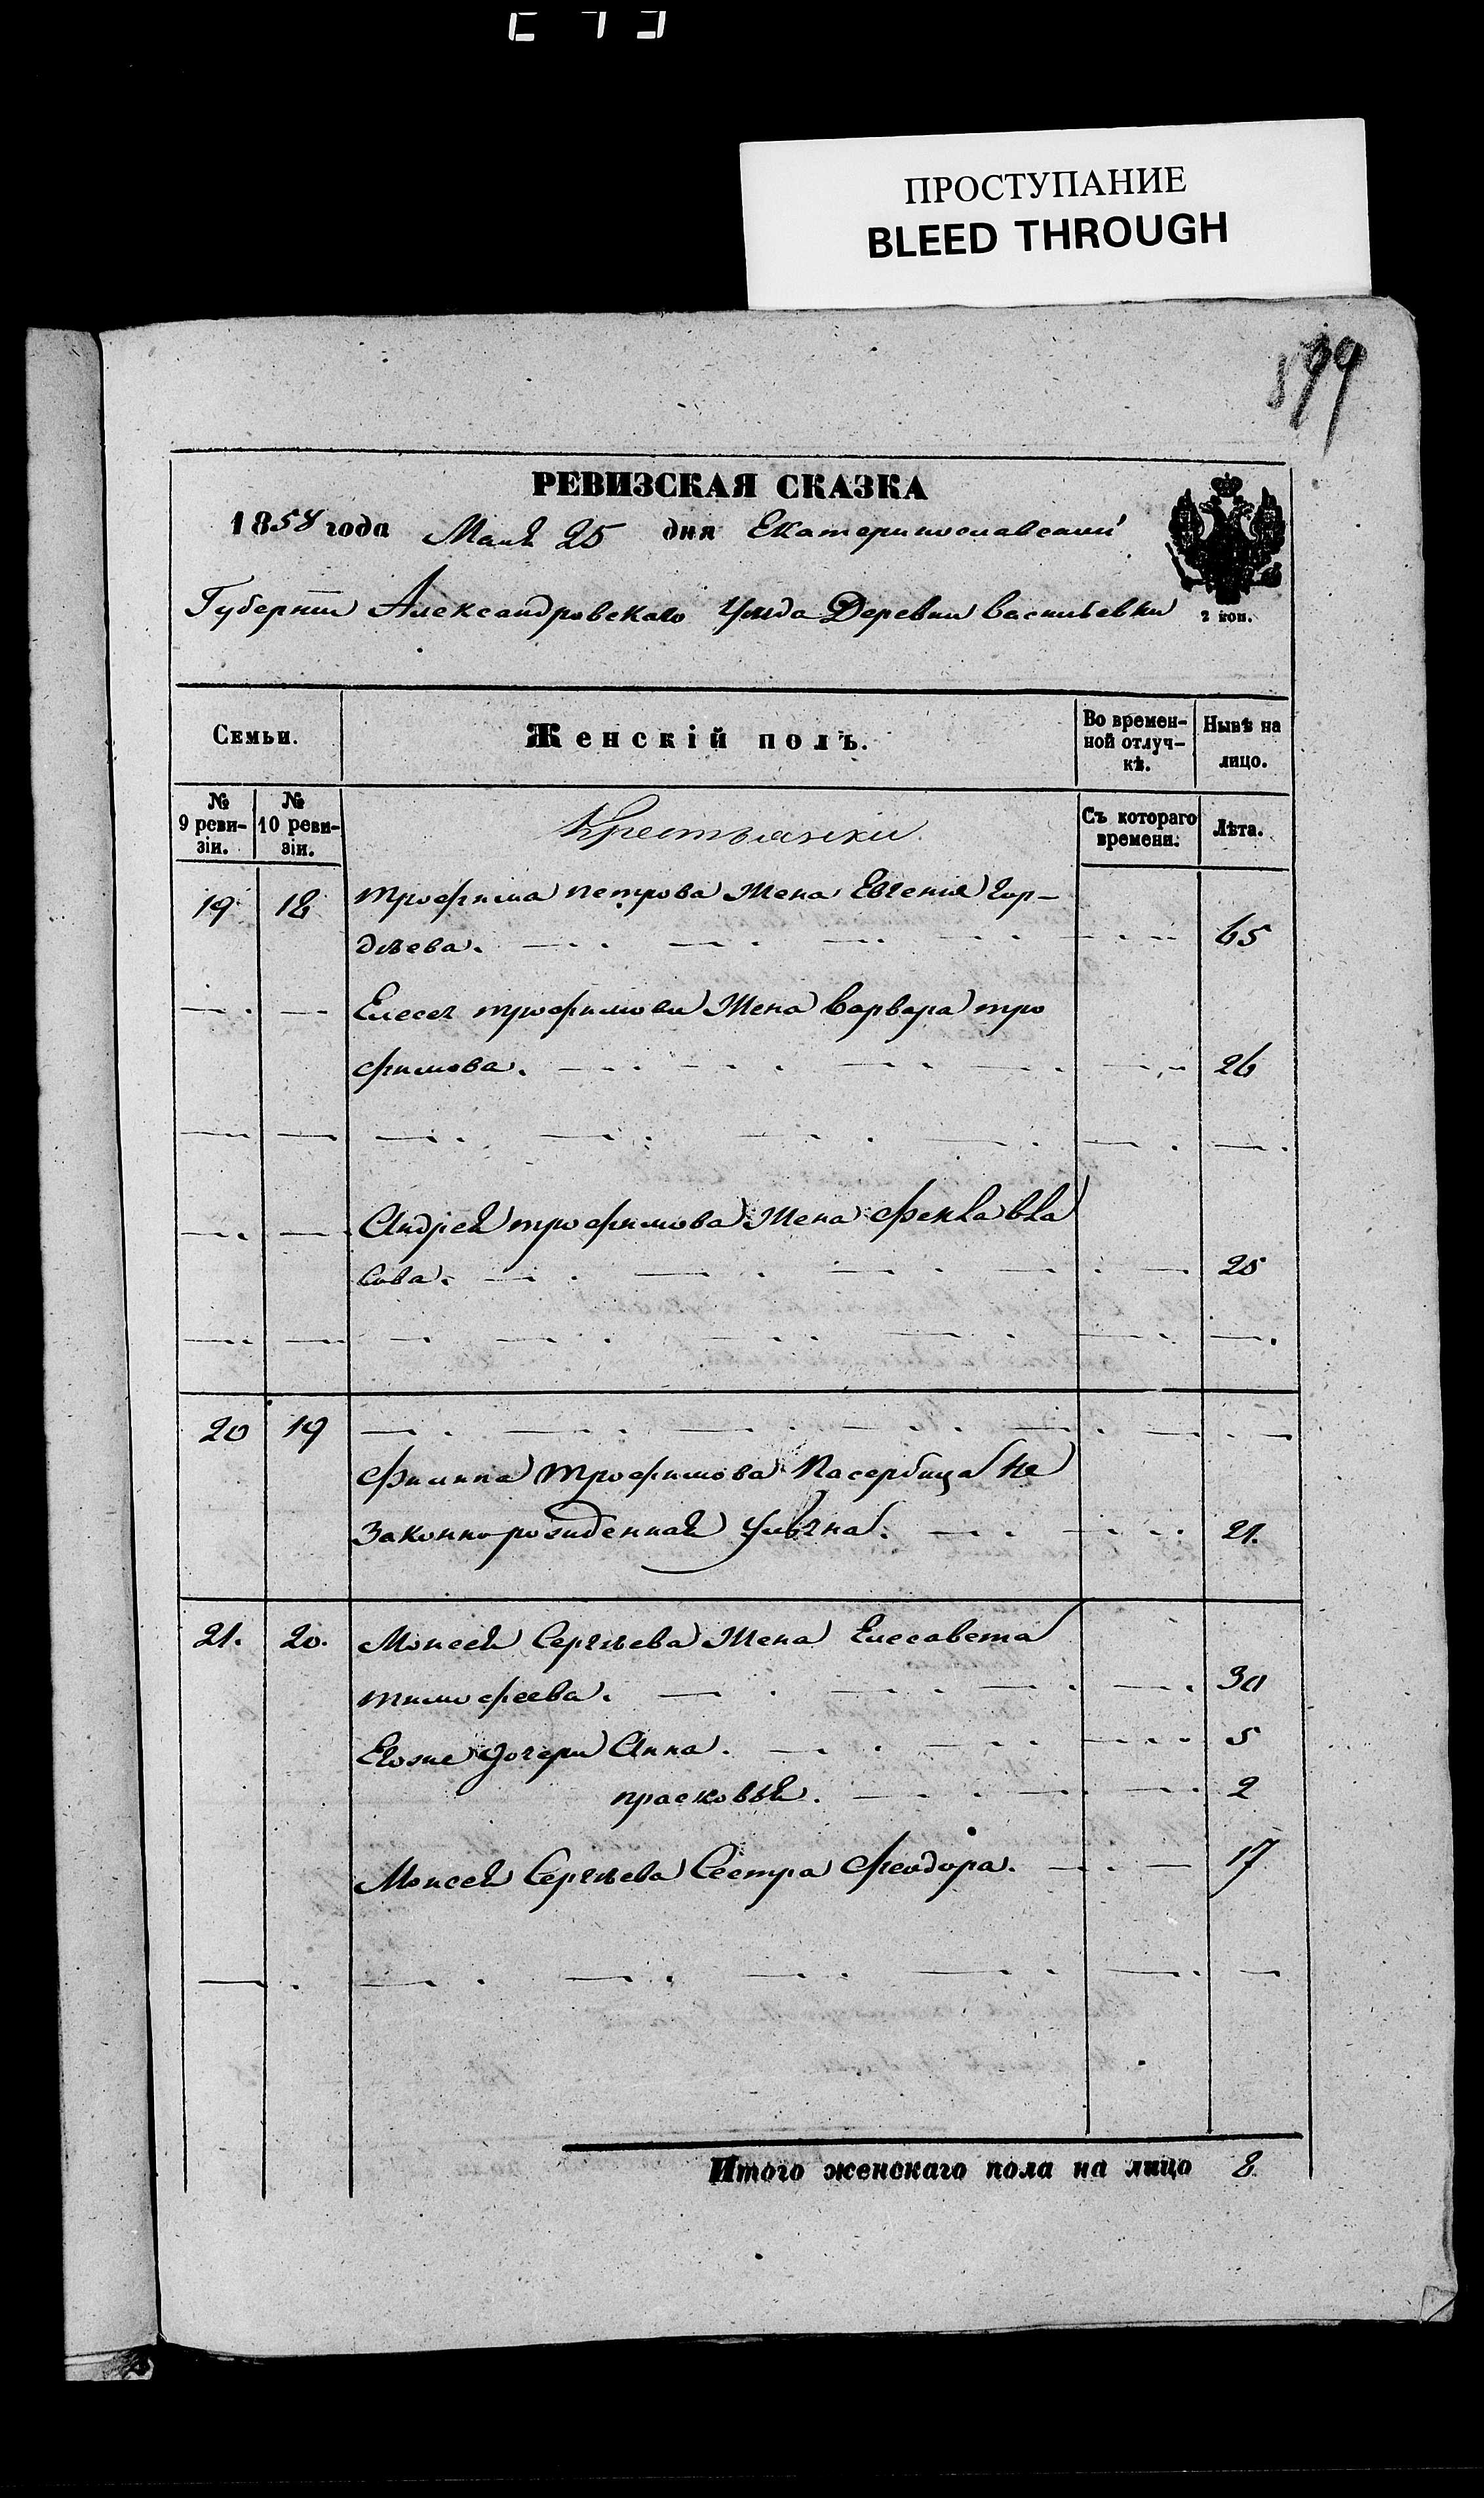 ПРОСТУПАНИЕ
BLEED THROUGH
РЕВИЗСКАЯ СКАЗКА
1858 года Мая 25 дня Екатеринославской
Губернии Александровскаго Уезда Деревни Васильевки
2 коп.
Семьи. Женскій полъ. Во времен-
ной отлуч-
кѣ. Нынѣ на
лицо.
№
9 реви-
зіи. №
10 реви-
зіи. Крестьянки Съ котораго
времени. Лѣта.
19 18 трофима петрова Жена Евгенія Гор-
дѣева. 65
Елесея трофимова Жена Варвара тро
фимова. 26
Андрея трофимова Жена Фекла Вла
сова. 25
20 19
Филипа Трофимова Пасербица не
законнорожденная 21.
21. 20. Моисея Сергѣева Жена Елесавета
тимофеева. 30
Егоже дочери Анна. 5
прасковья. 2
Моисея Сергѣева Сестра Феодора. 17
Итого женскаго пола на лицо 8